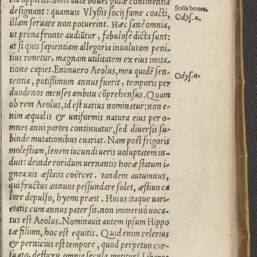 da oppletis. Solis aute boues gulæ continentiã
designant: quamuis Vlyssis socij fame coacti,
illam seruare non potuerint. Hæc sanè omnia,
ut prima fronte audiũtur, fabulosè dicta sunt:
at si quis sapientiam allegoria inuolutam peni-
tius rimetur, magnam utilitatem ex eius imita-
tione capiet. Enimuero Aeolus, mea quidẽ sen-
tentia, potissimum annus fuerit, temporis per
duodenos menses ambitu cõprehensus. Quam
ob rem Aeolus, id est uarius nominatur: non e-
nim æqualis & uniformis natura eius per o-
mnes anni partes continuatur, sed diuersis su-
binde mutationibus euariat. Nam post frigoris
molestiam, lenem iucundi ueris uoluptatem in-
duit: deinde roridum uernantis horæ statum i-
gnea uis æstatis coërcet. tandem autumnus,
qui fructus annuos pessundare solet, æstiuo ca
lore depulso, hyemi præit. Huius itaque uari-
etatis cum annus pater sit, non immeritò uoca-
tus est Aeolus. Nominauit autem ipsum Hippo
tæ filium, hoc est equitis. Quid enim celerius
& pernicius est tempore, quod perpetuo cur-
Solis boues.
Odyss. μ.
Odyss. κ.